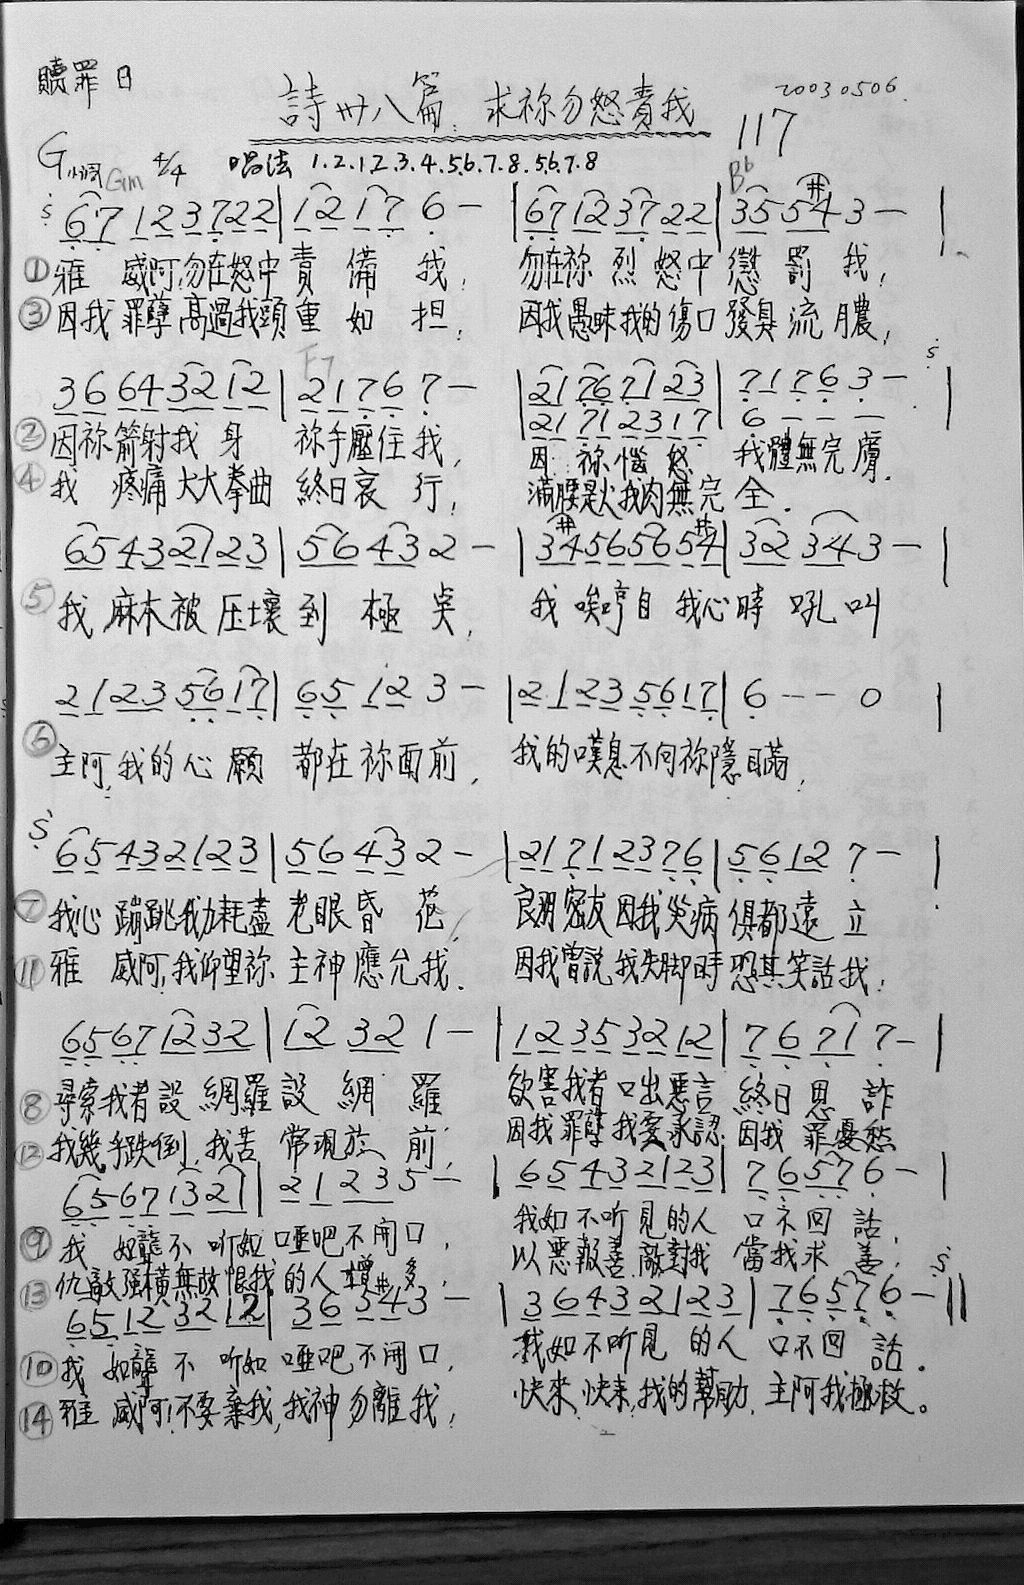 贖罪日
詩卅八篇：求祢勿怒責我
20030506
117
G小調 Gm 4/4 唱法 1.2.1.2.3.4.5.6.7.8.5.6.7.8
Bb
S 67 12 37 22 | 12 17 6 — | 67 12 37 22 | 35 5#4 3 — |
①雅 威阿,勿在怒中責 備 我, 勿在祢 烈 怒中 懲 罰 我,
③因我罪孽高過我頭重 如 担, 因我愚昧我的傷口發臭流膿,
F7
S
36 64 32 12 | 21 76 7 — | 21 76 71 23 | 71 76 3 — |
21 71 23 17 | 6 — — —
②因祢箭射我 身 祢手壓住我, 因 祢惱 怒 我體無完膚.
④我 疼痛大大拳曲 終日哀 行, 滿腰是火我肉無完 全.
65 43 21 23 | 56 43 2 — | 3#4 56 56 5#4 | 32 34 3 — |
⑤我麻木被压壞到 極 矣, 我 唉哼自 我心時 吼叫
21 23 56 17 | 65 12 3 — | 21 23 56 17 | 6 — — 0 |
⑥主阿,我的心 願 都在祢面前, 我的嘆息不向祢隱瞞,
S
65 43 21 23 | 56 43 2 — | 21 71 23 76 | 56 12 7 — |
⑦我心蹦跳我力耗盡 老眼昏 花, 良朋密友因我災病俱都遠立
⑪雅 威阿,我仰望祢 主神應允我. 因我曾說,我失脚時恐其笑話我,
65 67 12 32 | 12 32 1 — | 12 35 32 12 | 76 71 7 — |
⑧尋索我者設 網羅設 網 羅 欲害我者口出惡言 終日思 詐
⑫我幾乎跌倒,我苦 常現於 前, 因我罪孽我要承認,因我 罪憂愁
65 67 13 21 | 21 23 5 — | 65 43 21 23 | 76 57 6 — |
⑨我 如聾不 听如 啞吧不開口, 我如不听見的人 口不回 話,
⑬仇敵强橫無故恨我的人增多, 以惡報善敵對我 當我求 善,
S
65 12 32 12 | 36 5#4 3 — | 36 43 21 23 | 76 57 6 — ||
⑩我 如聾 不 听如 啞吧不開口, 我如不听見 的人 口不回 話.
⑭雅 威阿!不要棄我,我神勿離我, 快來,快來,我的幫助,主阿我拯救。